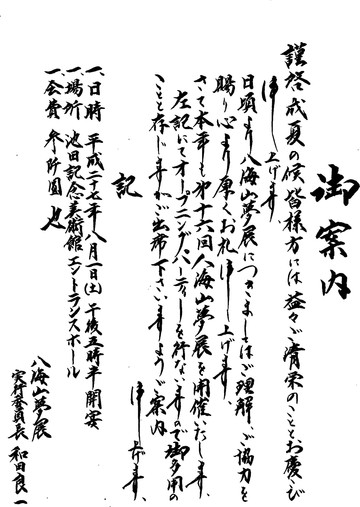 御案内
謹啓 成夏の候、皆様方には益々ご清栄のこととお慶び
申し上げます
日頃より八海山夢展につきましてはご理解、ご協力を
賜り心より厚くお礼申し上げます、
さて本年も第十六回八海山夢展を開催いたします、
左記にてオープニングパーティーを行ないますので御多用の
ことと存じますがご出席下さいますようご案内
申し上げます、
記
一、日時 平成二十七年八月一日(土)午後五時半開宴
一、場所 池田記念美術館エントランスホール
一、会費 参阡圓也
八海山夢展
実行委員長 和田良一